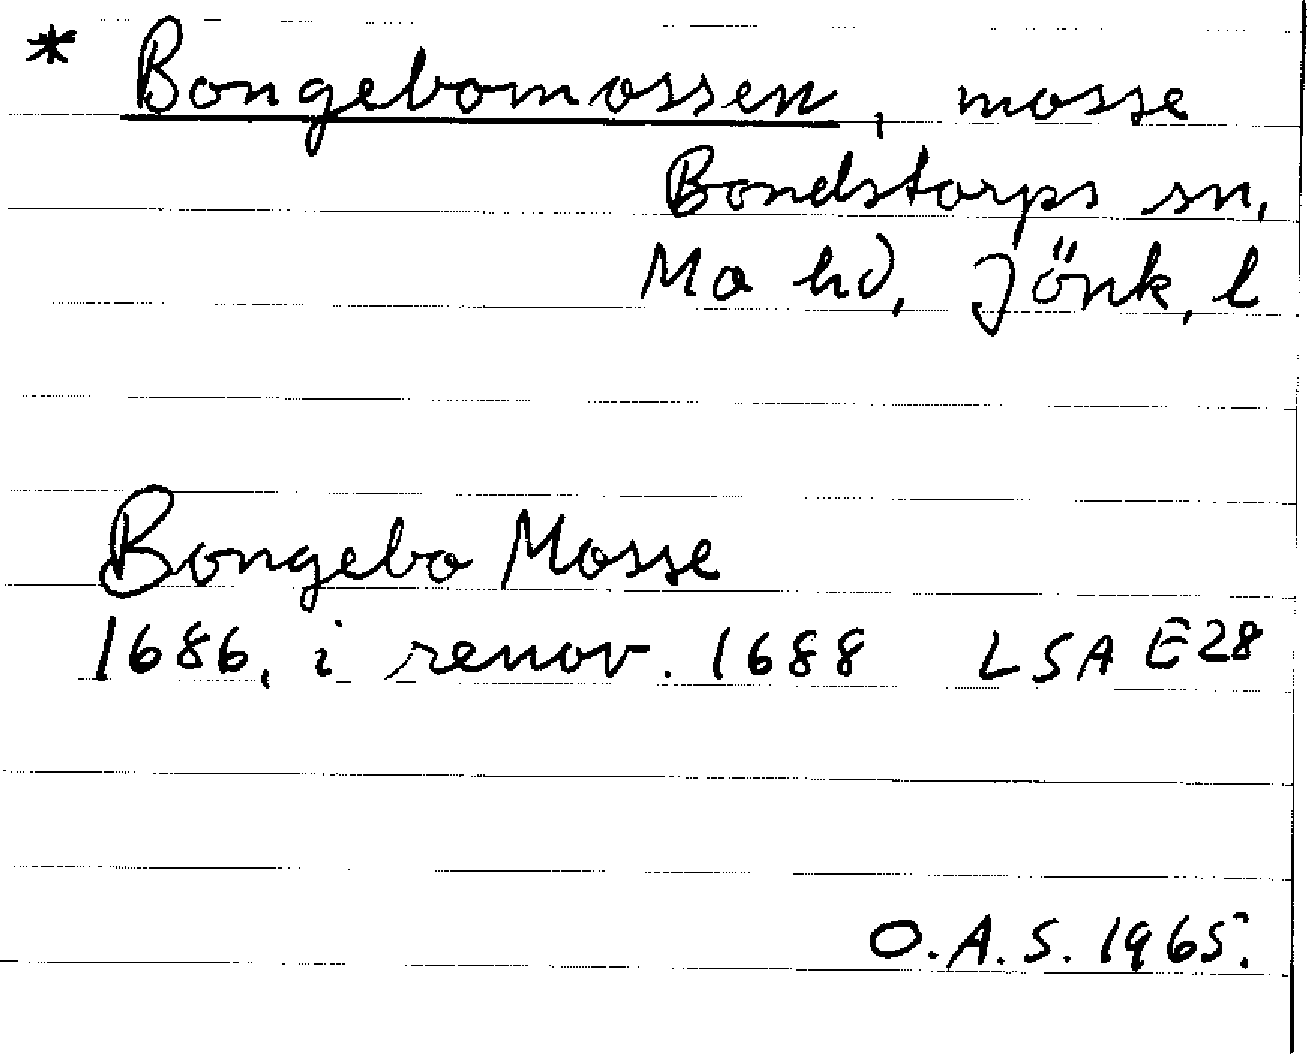 * Bongebomossen, mosse
Bondstorps sn,
Mo hd, Jönk, l
Bongebo Mosse
1686, i renov. 1688 LSA E28
O.A.S. 1965.